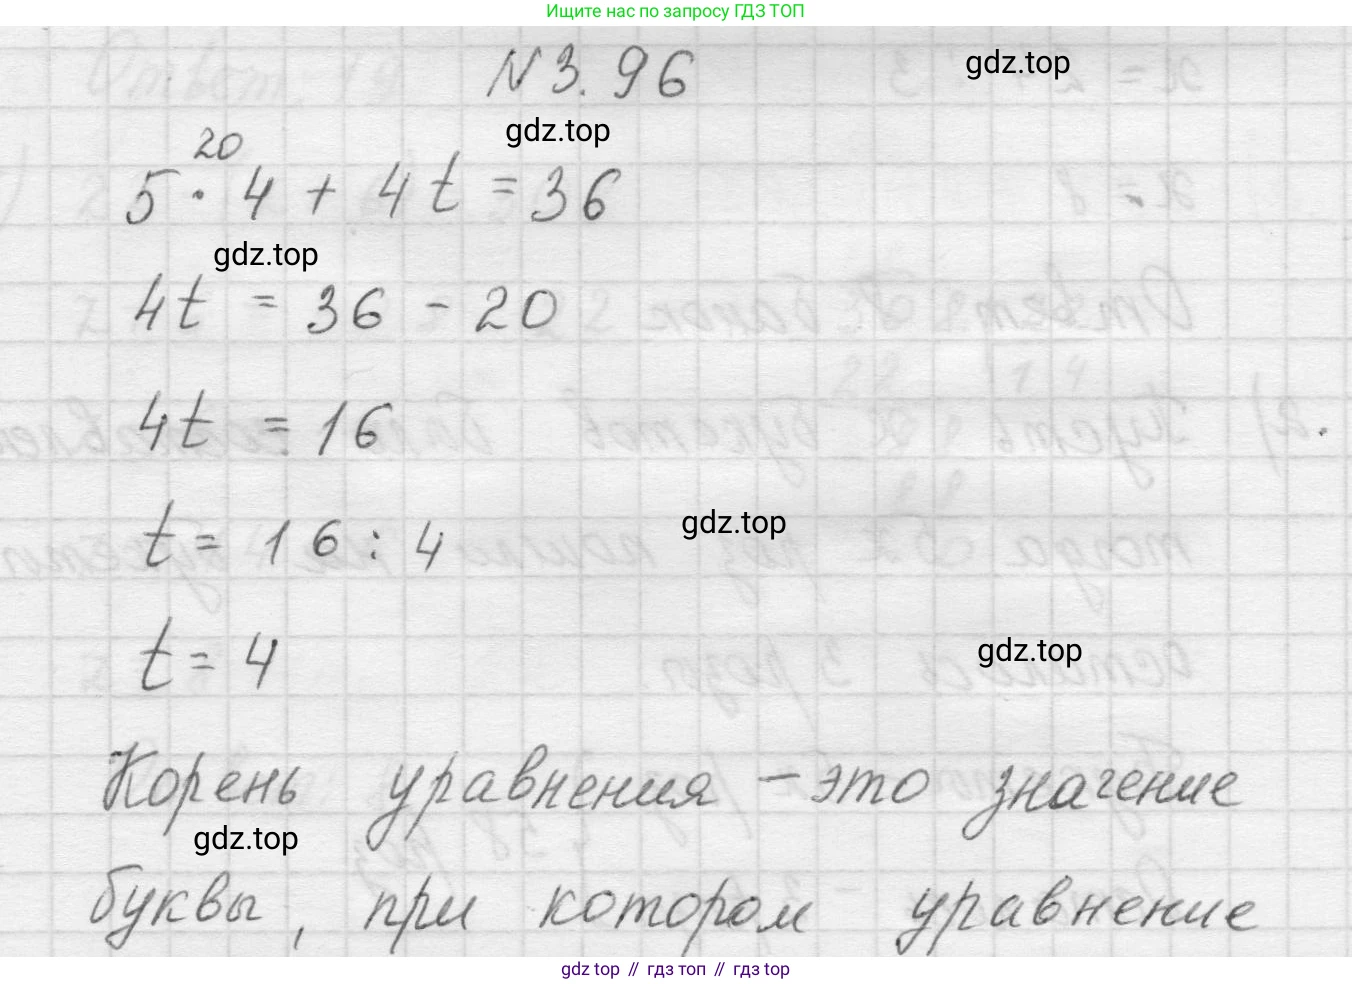 Ищите нас по запросу ГДЗ ТОП
N 3.96
gdz.top
gdz.top
20
5 · 4 + 4t = 36
gdz.top
4t = 36 - 20
4t = 16
t = 16 : 4
gdz.top
t = 4
gdz.top
Корень уравнения – это значение
gdz.top
буквы, при котором уравнение
gdz top // гдз топ // gdz top